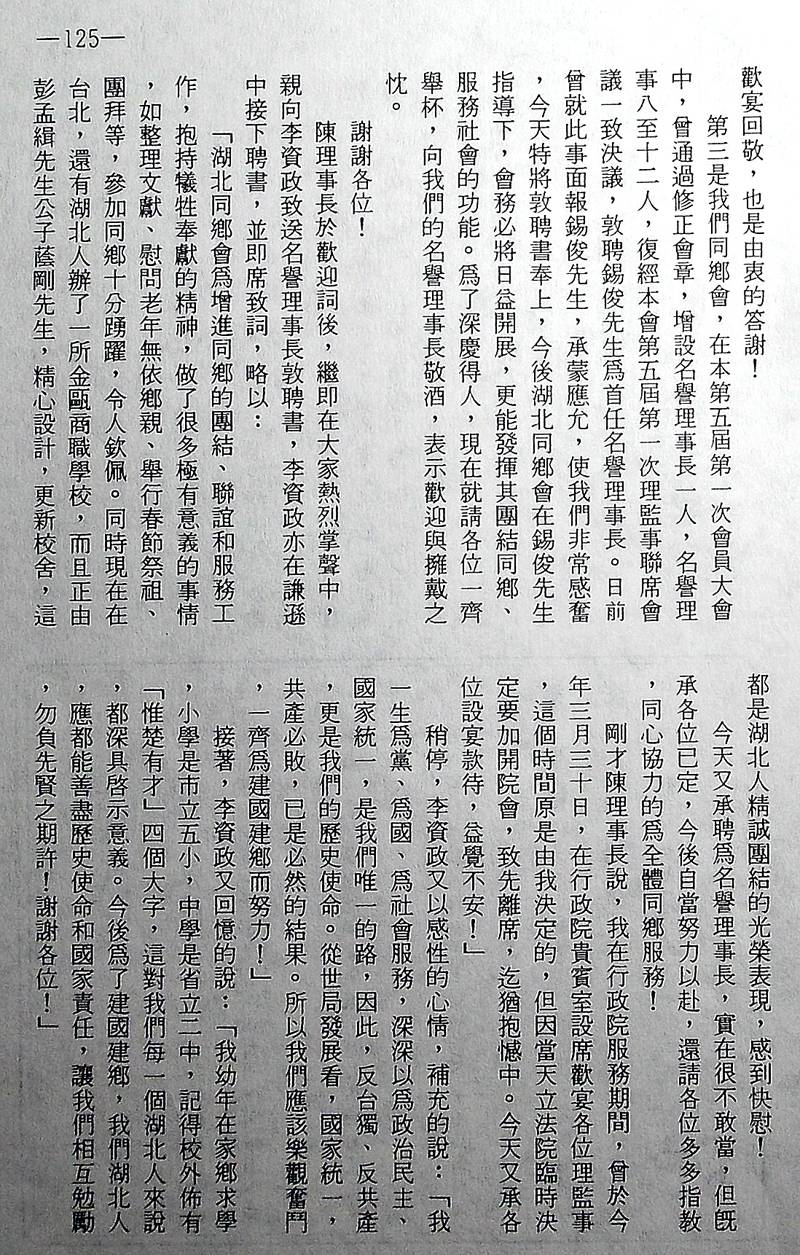 —125—
歡宴回敬，也是由衷的答謝！
第三是我們同鄉會，在本第五屆第一次會員大會
中，曾通過修正會章，增設名譽理事長一人，名譽理
事八至十二人，復經本會第五屆第一次理監事聯席會
議一致決議，敦聘錫俊先生爲首任名譽理事長。日前
曾就此事面報錫俊先生，承蒙應允，使我們非常感奮
，今天特將敦聘書奉上，今後湖北同鄉會在錫俊先生
指導下，會務必將日益開展，更能發揮其團結同鄉、
服務社會的功能。爲了深慶得人，現在就請各位一齊
舉杯，向我們的名譽理事長敬酒，表示歡迎與擁戴之
忱。
謝謝各位！
陳理事長於歡迎詞後，繼即在大家熱烈掌聲中，
親向李資政致送名譽理事長敦聘書，李資政亦在謙遜
中接下聘書，並即席致詞，略以：
「湖北同鄉會爲增進同鄉的團結、聯誼和服務工
作，抱持犧牲奉獻的精神，做了很多極有意義的事情
，如整理文獻、慰問老年無依鄉親、舉行春節祭祖、
團拜等，參加同鄉十分踴躍，令人欽佩。同時現在在
台北，還有湖北人辦了一所金甌商職學校，而且正由
彭孟緝先生公子蔭剛先生，精心設計，更新校舍，這
都是湖北人精誠團結的光榮表現，感到快慰！
今天又承聘爲名譽理事長，實在很不敢當，但既
承各位已定，今後自當努力以赴，還請各位多多指教
，同心協力的爲全體同鄉服務！
剛才陳理事長說，我在行政院服務期間，曾於今
年三月三十日，在行政院貴賓室設席歡宴各位理監事
，這個時間原是由我決定的，但因當天立法院臨時決
定要加開院會，致先離席，迄猶抱憾中。今天又承各
位設宴款待，益覺不安！」
稍停，李資政又以感性的心情，補充的說：「我
一生爲黨、爲國、爲社會服務，深深以爲政治民主、
國家統一，是我們唯一的路，因此，反台獨、反共產
，更是我們的歷史使命。從世局發展看，國家統一，
共產必敗，已是必然的結果。所以我們應該樂觀奮鬥
，一齊爲建國建鄉而努力！」
接著，李資政又回憶的說：「我幼年在家鄉求學
，小學是市立五小，中學是省立二中，記得校外佈有
「惟楚有才」四個大字，這對我們每一個湖北人來說
，都深具啓示意義。今後爲了建國建鄉，我們湖北人
，應都能善盡歷史使命和國家責任，讓我們相互勉勵
，勿負先賢之期許！謝謝各位！」